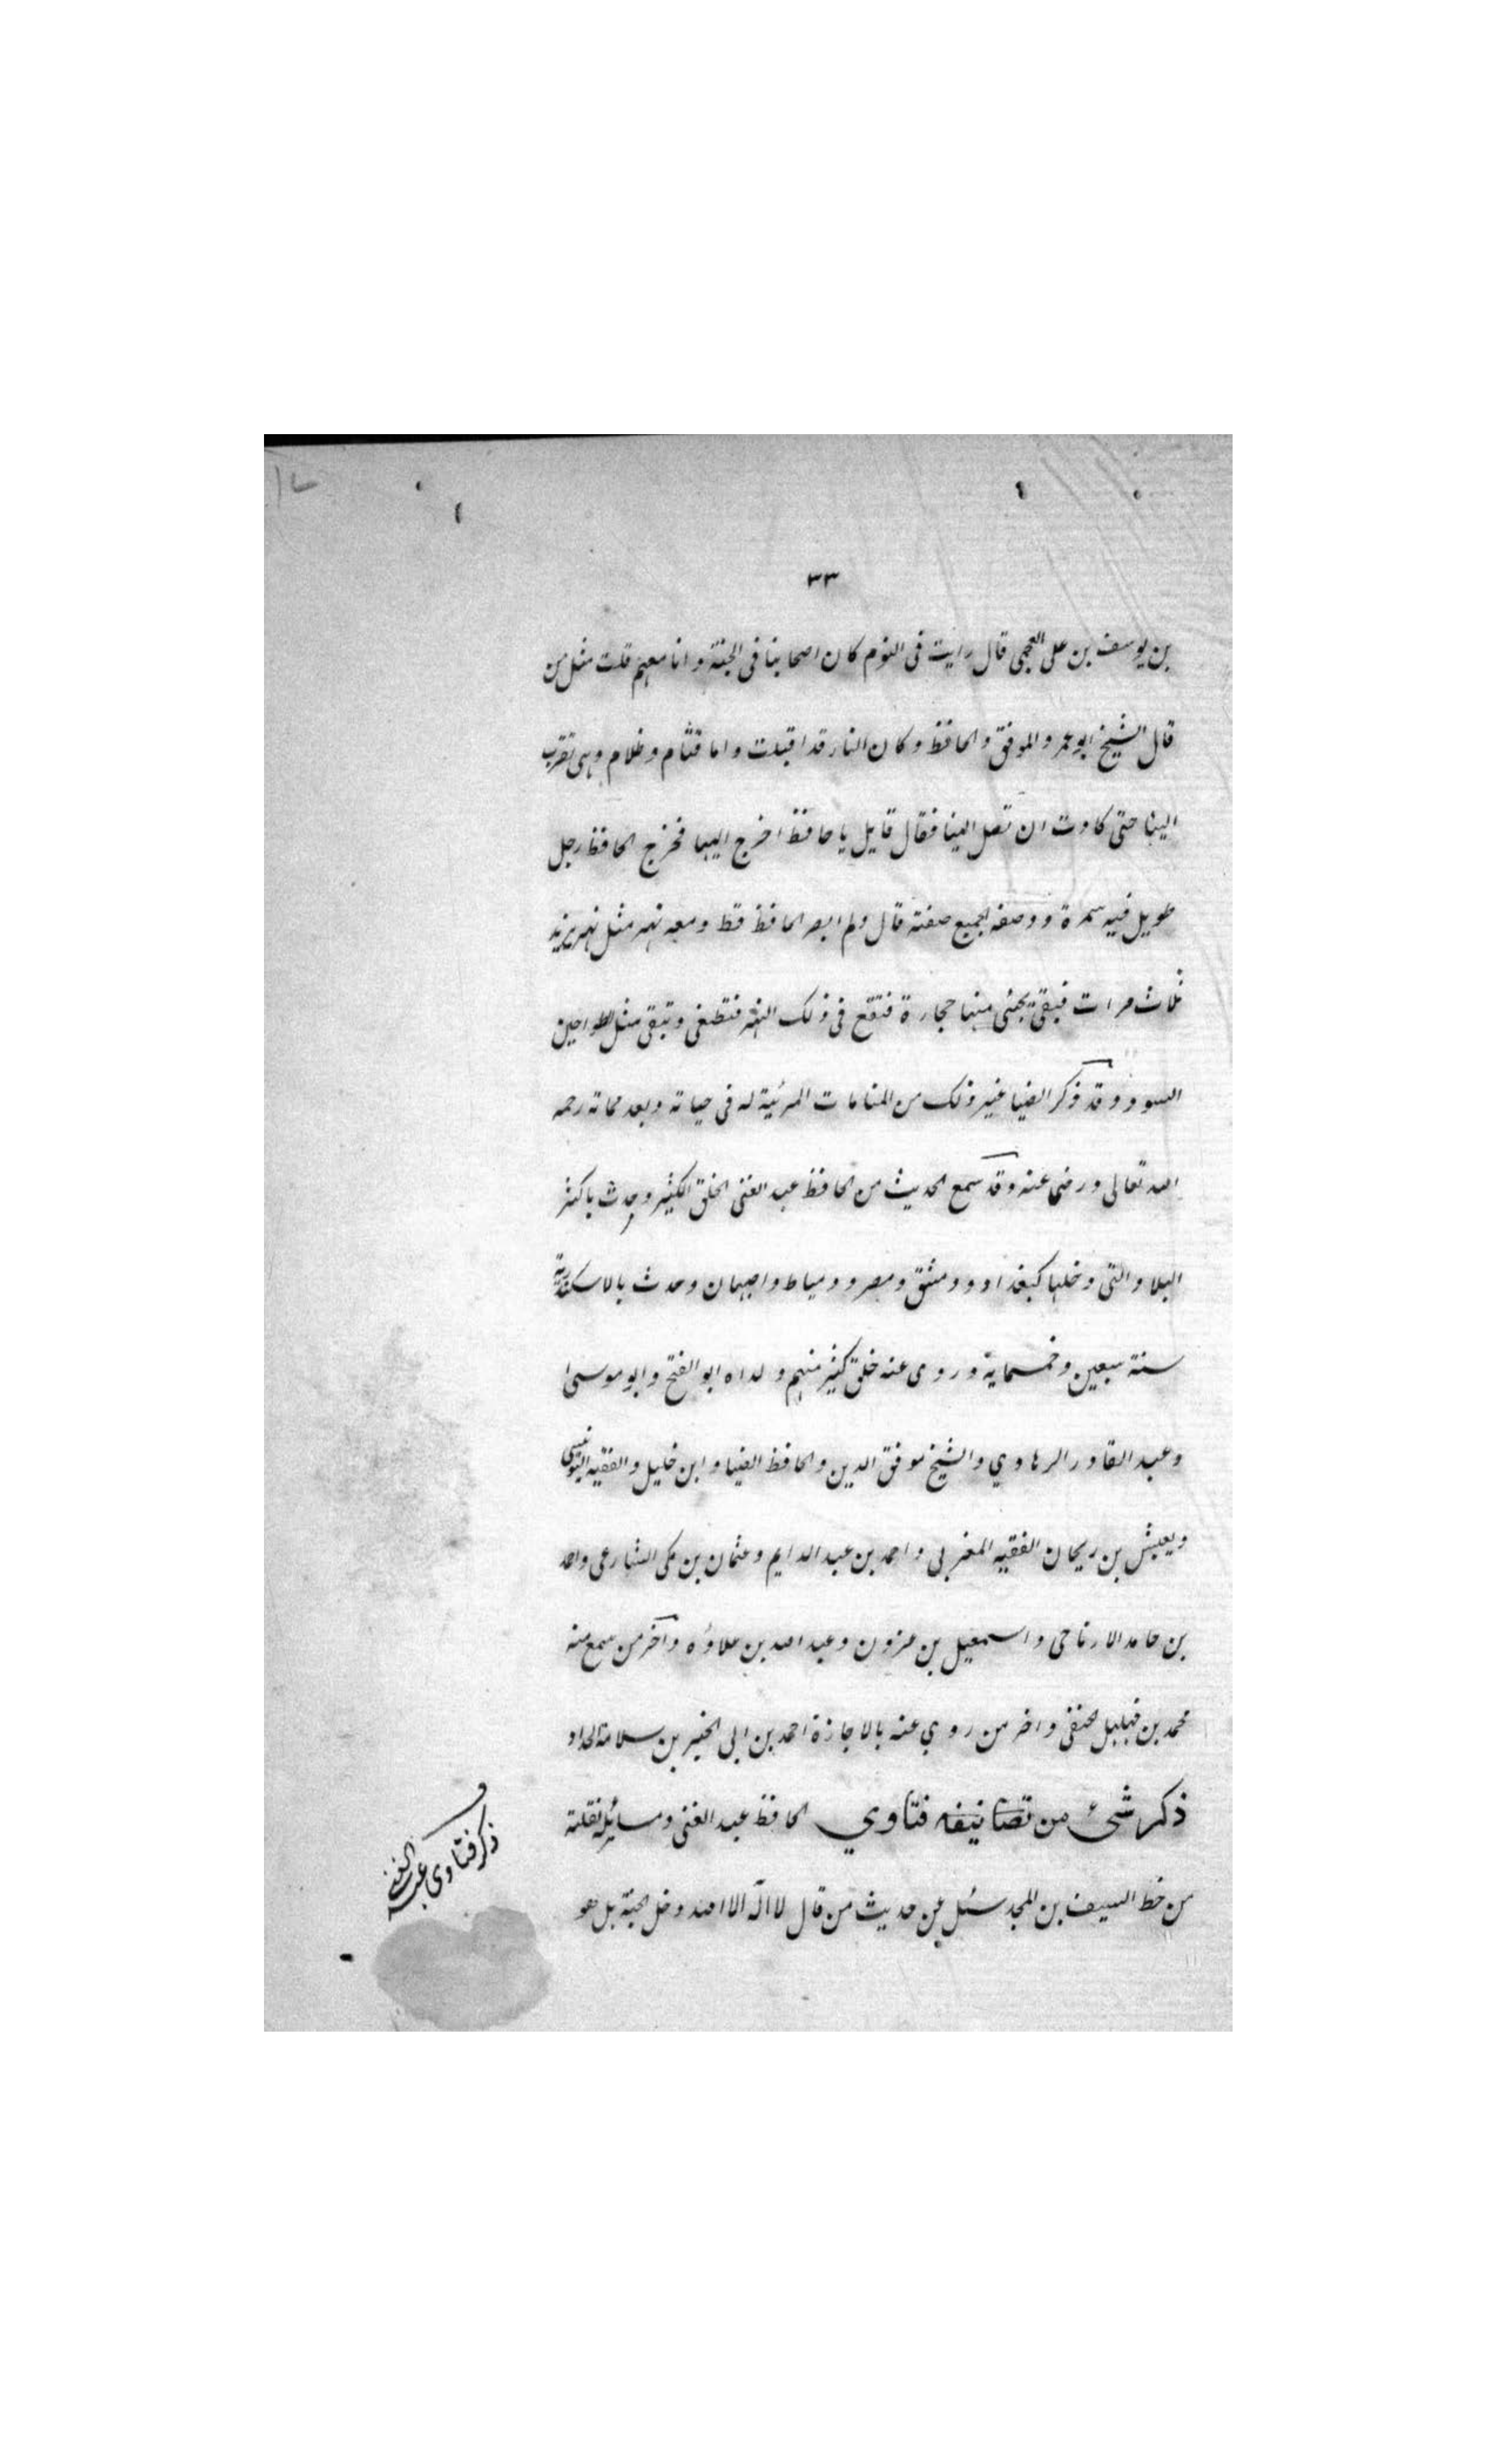 ٣٣
بن يوسف بن على العجمى قال رايت فى النوم كان اصحابنا فى الجنة وانا معهم قلت مثل من
قال الشيخ ابو عمر والموفق والحافظ وكان النار قد اقبلت واما قتام وظلام وهى تقرب
الينا حتى كادت ان تصل الينا فقال قايل يا حافظ اخرج اليها فخرج الحافظ رجل
طويل فيه سمرة ووصفه لجميع صفته قال ولم ابصر الحافظ قط ومعه نهر مثل نهر يزيد
ثلاث مرات فبقى يجئ منها حجارة فتقع فى ذلك النهر فتطفى وتبقى مثل الطواحين
السود وقد ذكر الضيا غير ذلك من المنامات المرئية له فى حياته وبعد مماته رحمه
الله تعالى ورضى عنه وقد سمع الحديث من الحافظ عبد الغنى الخلق الكثير وحدث باكثر
البلاد التى دخلها كبغداد ودمشق ومصر ودمياط واصبهان وحدث بالاسكندرية
سنة سبعين وخمسماية وروى عنه خلق كثير منهم ولداه ابو الفتح وابو موسى
وعبد القادر الرهاوي والشيخ موفق الدين والحافظ الضيا وابن خليل والفقيه اليونينى
ويعيش بن ريحان الفقيه المغربى واحمد بن عبد الدايم وعثمان بن مكى الشارعى واحمد
بن حامد الارتاحى واسمعيل بن عزون وعبد الله بن علاؤه وآخر من سمع منه
محمد بن مهلهل الحنفى واخر من روي عنه بالاجازة احمد بن ابى الخير بن سلامة الحداد
ذكر شئ من تصانيفه فتاوي الحافظ عبد الغنى ومسايل نقلته
من خط السيف بن المجد سئل عن حديث من قال لا اله الا الله دخل الجنة بل هو
ذكر فتاوى عبد الغنى